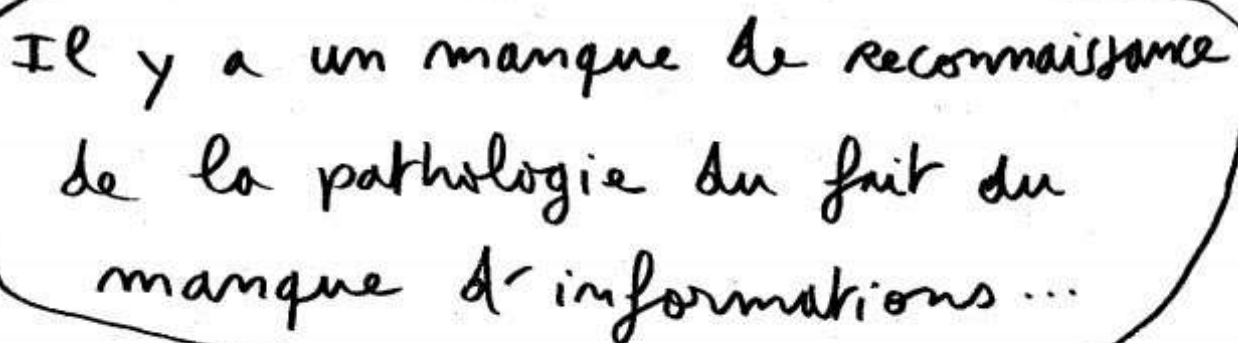 Il y a un manque de reconnaissance
de la pathologie du fait du
manque d'informations...